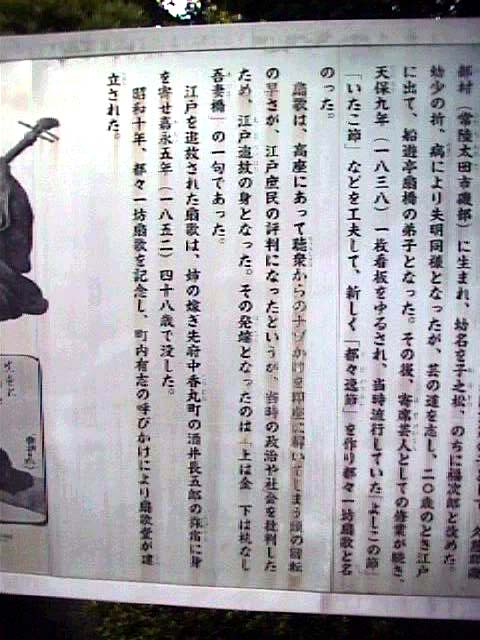 部村（常陸太田市磯部）に生まれ、幼名を子之松、のちに福次郎と改めた。
幼少の折、病により失明同様となったが、芸の道を志し、二〇歳のとき江戸
に出て、船遊亭扇橋の弟子となった。その後、寄席芸人としての修業が続き、
天保九年（一八三八）一枚看板をゆるされ、当時流行していた「よしこの節」
「いたこ節」などを工夫して、新しく「都々逸節」を作り都々一坊扇歌と名
のった。
扇歌は、高座にあって聴衆からのナゾかけを即座に解いてしまう頭の回転
の早さが、江戸庶民の評判になったというが、当時の政治や社会を批判した
ため、江戸追放の身となった。その発端となったのは「上は金 下は杭なし
吾妻橋」の一句であった。
江戸を追放された扇歌は、姉の嫁ぎ先府中香丸町の酒井長五郎の旅宿に身
を寄せ嘉永五年（一八五二）四十八歳で没した。
昭和十年、都々一坊扇歌を記念し、町内有志の呼びかけにより扇歌堂が建
立された。